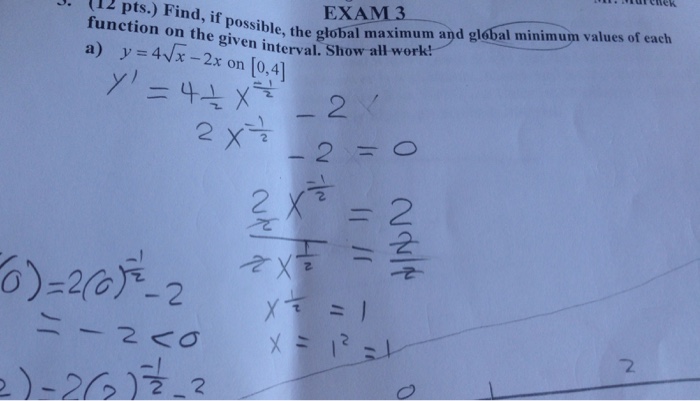 EXAM 3
(12 pts.) Find, if possible, the global maximum and global minimum values of each
function on the given interval. Show all work!
a) y = 4√x − 2x on [0,4]
y' = 4 1/2 x^(-1/2) − 2
2 x^(-1/2) − 2 = 0
2 x^(-1/2) = 2
2 x^(1/2) = 2/2
x^(1/2) = 1
x = 1² = 1
(0) = 2(0)^(-1/2) − 2
= − 2 < 0
2) − 2(2)^(-1/2) − 2
2
0 1